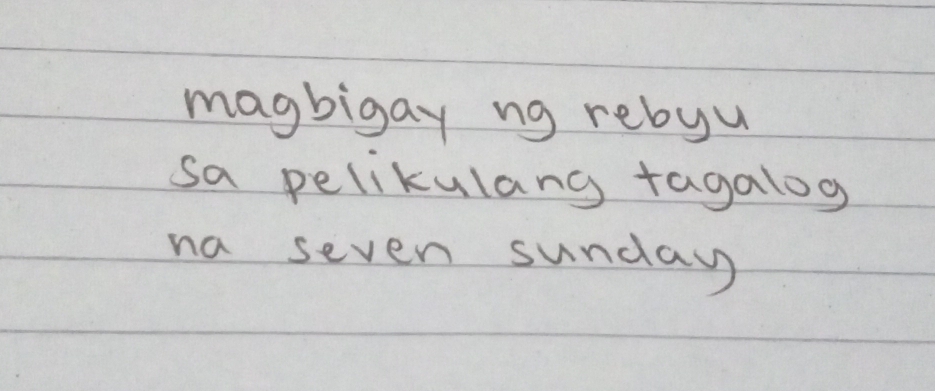 magbigay ng rebyu
sa pelikulang tagalog
na seven sunday